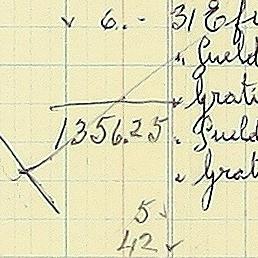 ✓ 6.- 31 Efe
" Sueld
" Grati
1,356.25 " Sueld
" Grat
5 ✓
42 ✓